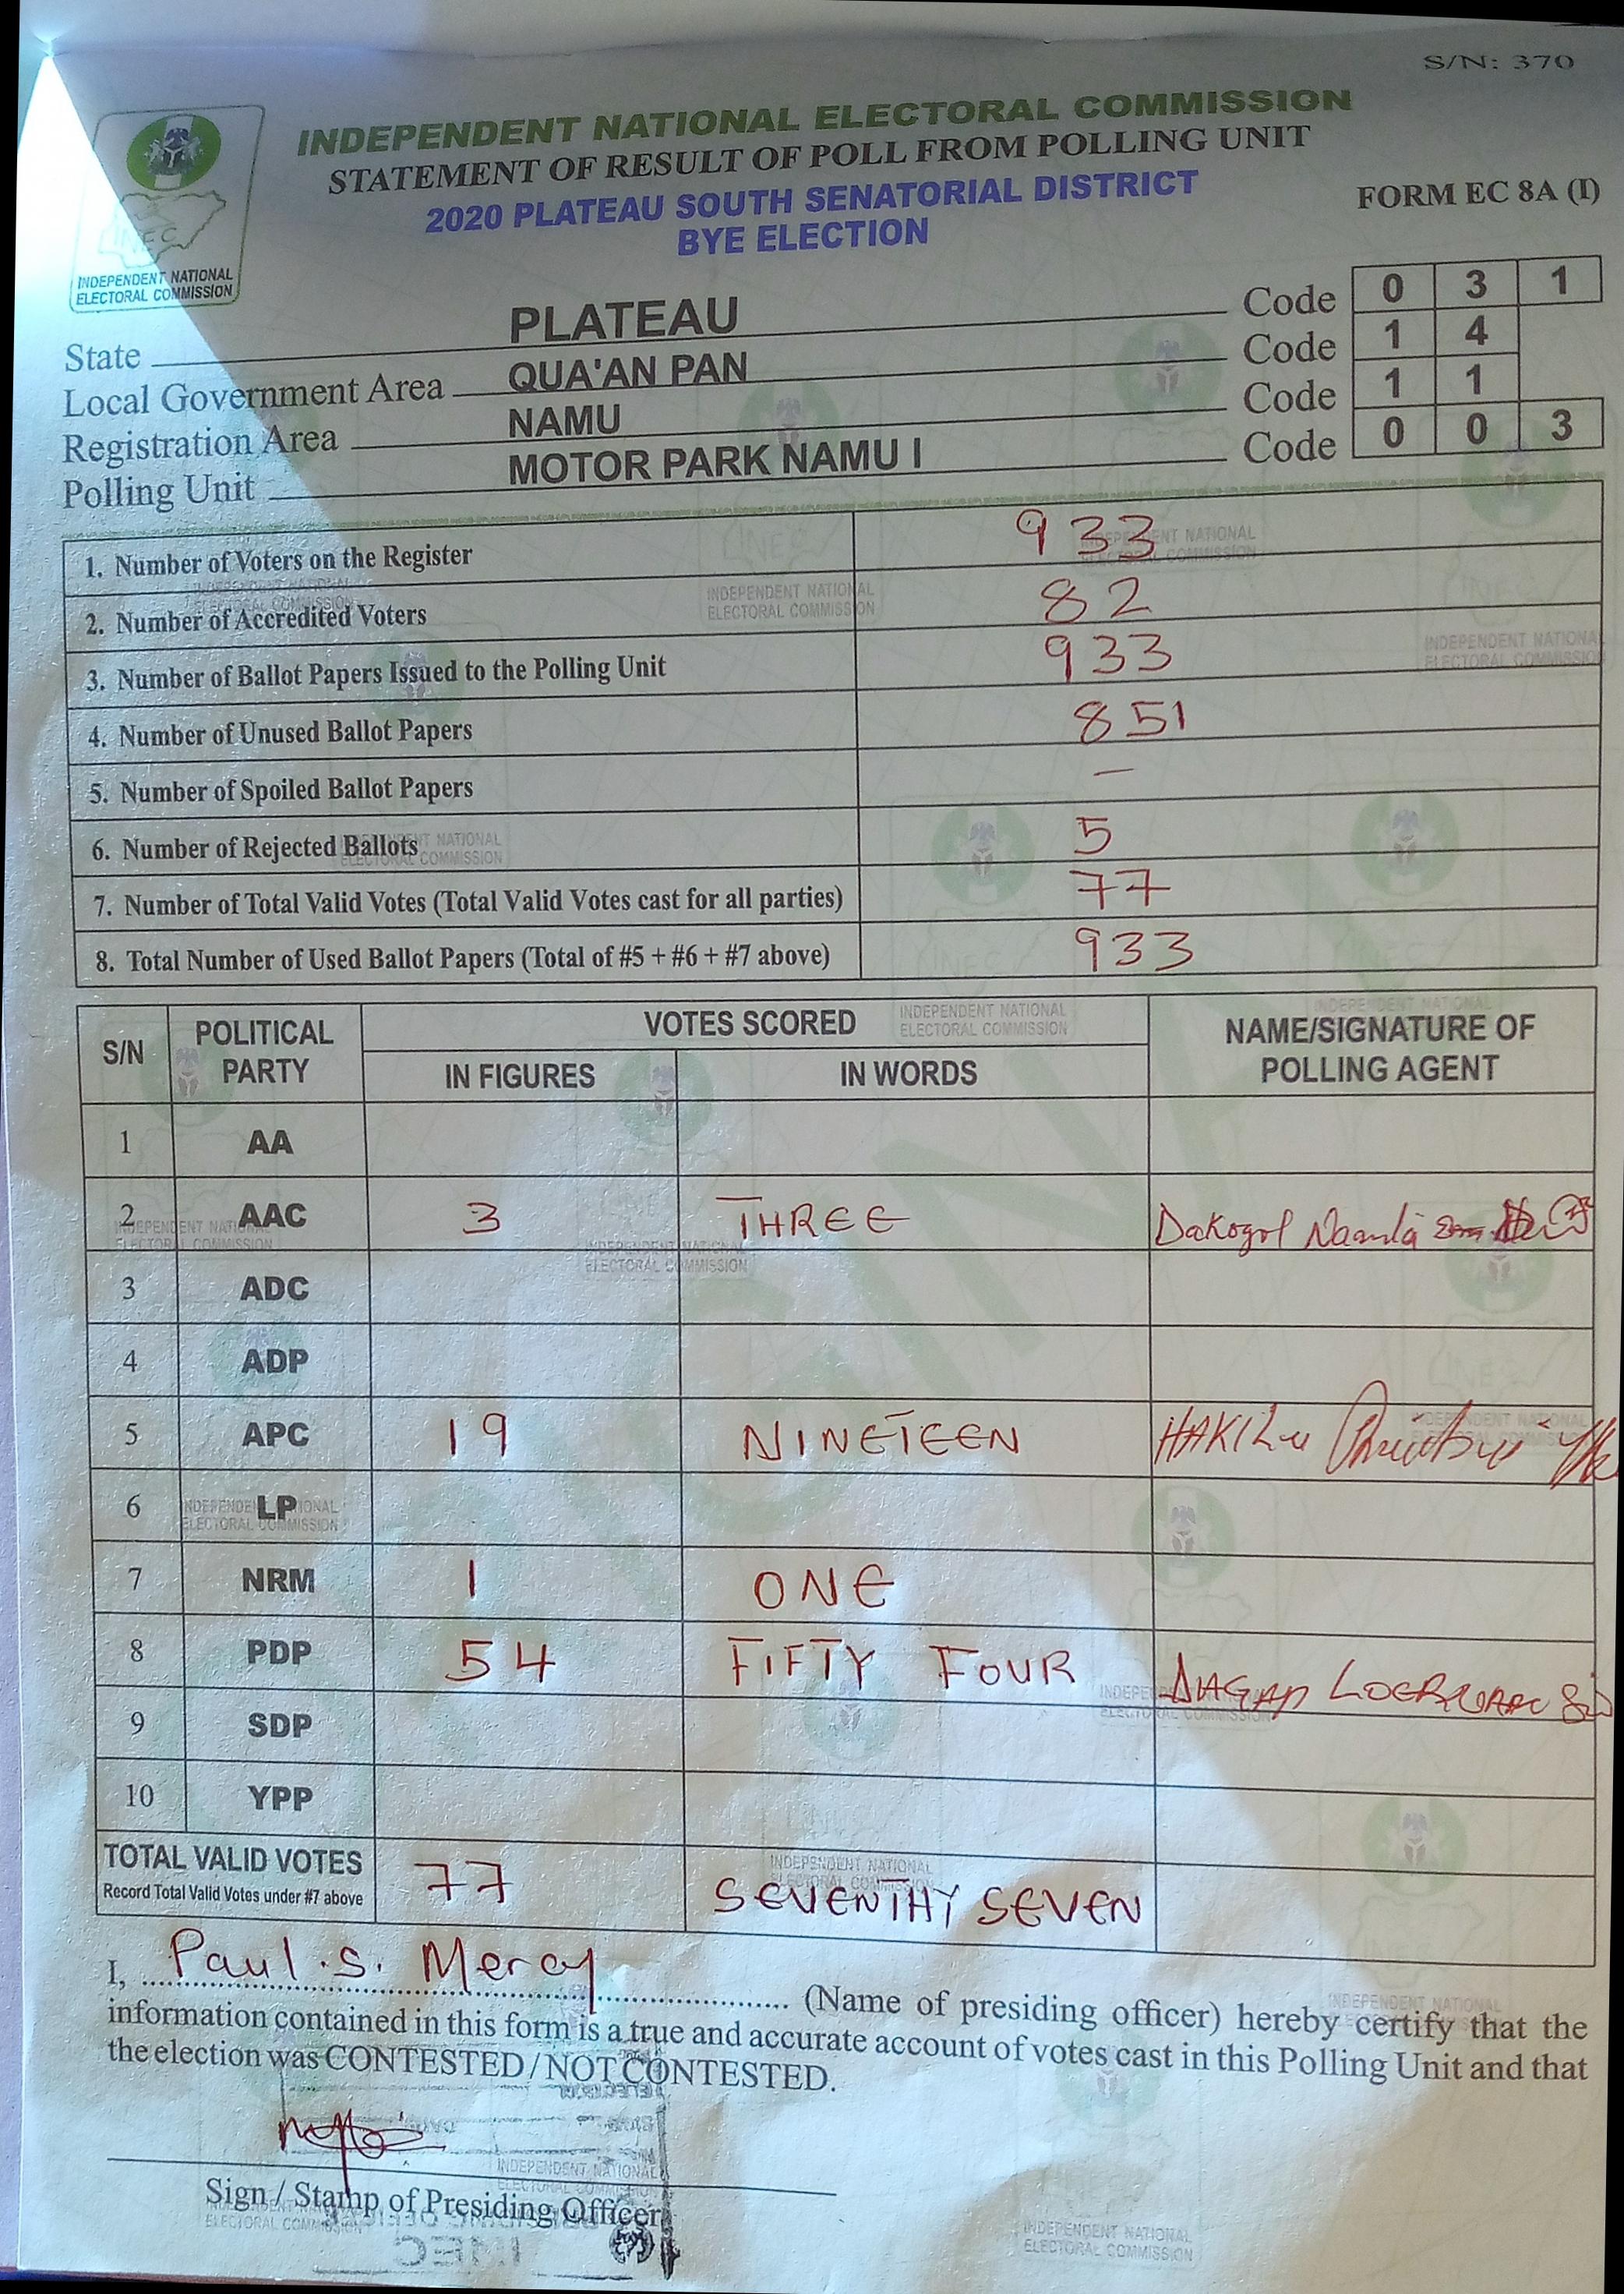 S/N: 370
INDEPENDENT NATIONAL ELECTORAL COMMISSION
STATEMENT OF RESULT OF POLL FROM POLLING UNIT
2020 PLATEAU SOUTH SENATORIAL DISTRICT
BYE ELECTION
FORM EC 8A (I)
INEC
INDEPENDENT NATIONAL
ELECTORAL COMMISSION
State PLATEAU Code 0 3 1
Local Government Area QUA'AN PAN Code 1 4
Registration Area NAMU Code 1 1
Polling Unit MOTOR PARK NAMU I Code 0 0 3
1. Number of Voters on the Register 933
2. Number of Accredited Voters 82
3. Number of Ballot Papers Issued to the Polling Unit 933
4. Number of Unused Ballot Papers 851
5. Number of Spoiled Ballot Papers —
6. Number of Rejected Ballots 5
7. Number of Total Valid Votes (Total Valid Votes cast for all parties) 77
8. Total Number of Used Ballot Papers (Total of #5 + #6 + #7 above) 933
S/N POLITICAL PARTY VOTES SCORED NAME/SIGNATURE OF POLLING AGENT
IN FIGURES IN WORDS
1 AA
2 AAC 3 THREE Dakogol
3 ADC
4 ADP
5 APC 19 NINETEEN
6 LP
7 NRM 1 ONE
8 PDP 54 FIFTY FOUR
9 SDP
10 YPP
TOTAL VALID VOTES 77 SEVENTHY SEVEN
Record Total Valid Votes under #7 above
I, Paul .S. Mercy (Name of presiding officer) hereby certify that the
information contained in this form is a true and accurate account of votes cast in this Polling Unit and that
the election was CONTESTED/NOT CONTESTED.
Sign / Stamp of Presiding Officer